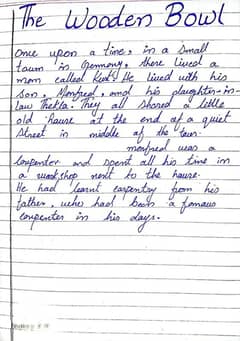 The Wooden Bowl
Once upon a time, in a small
town in Germany, there lived a
man called Kurt. He lived with his
son, Manfred, and his daughter-in-
law Thekla. They all shared a little
old house at the end of a quiet
street in middle of the town.
manfred was a
carpenter and spent all his time in
a workshop next to the house.
He had learnt carpentry from his
father, who had been a famous
carpenter in his days.